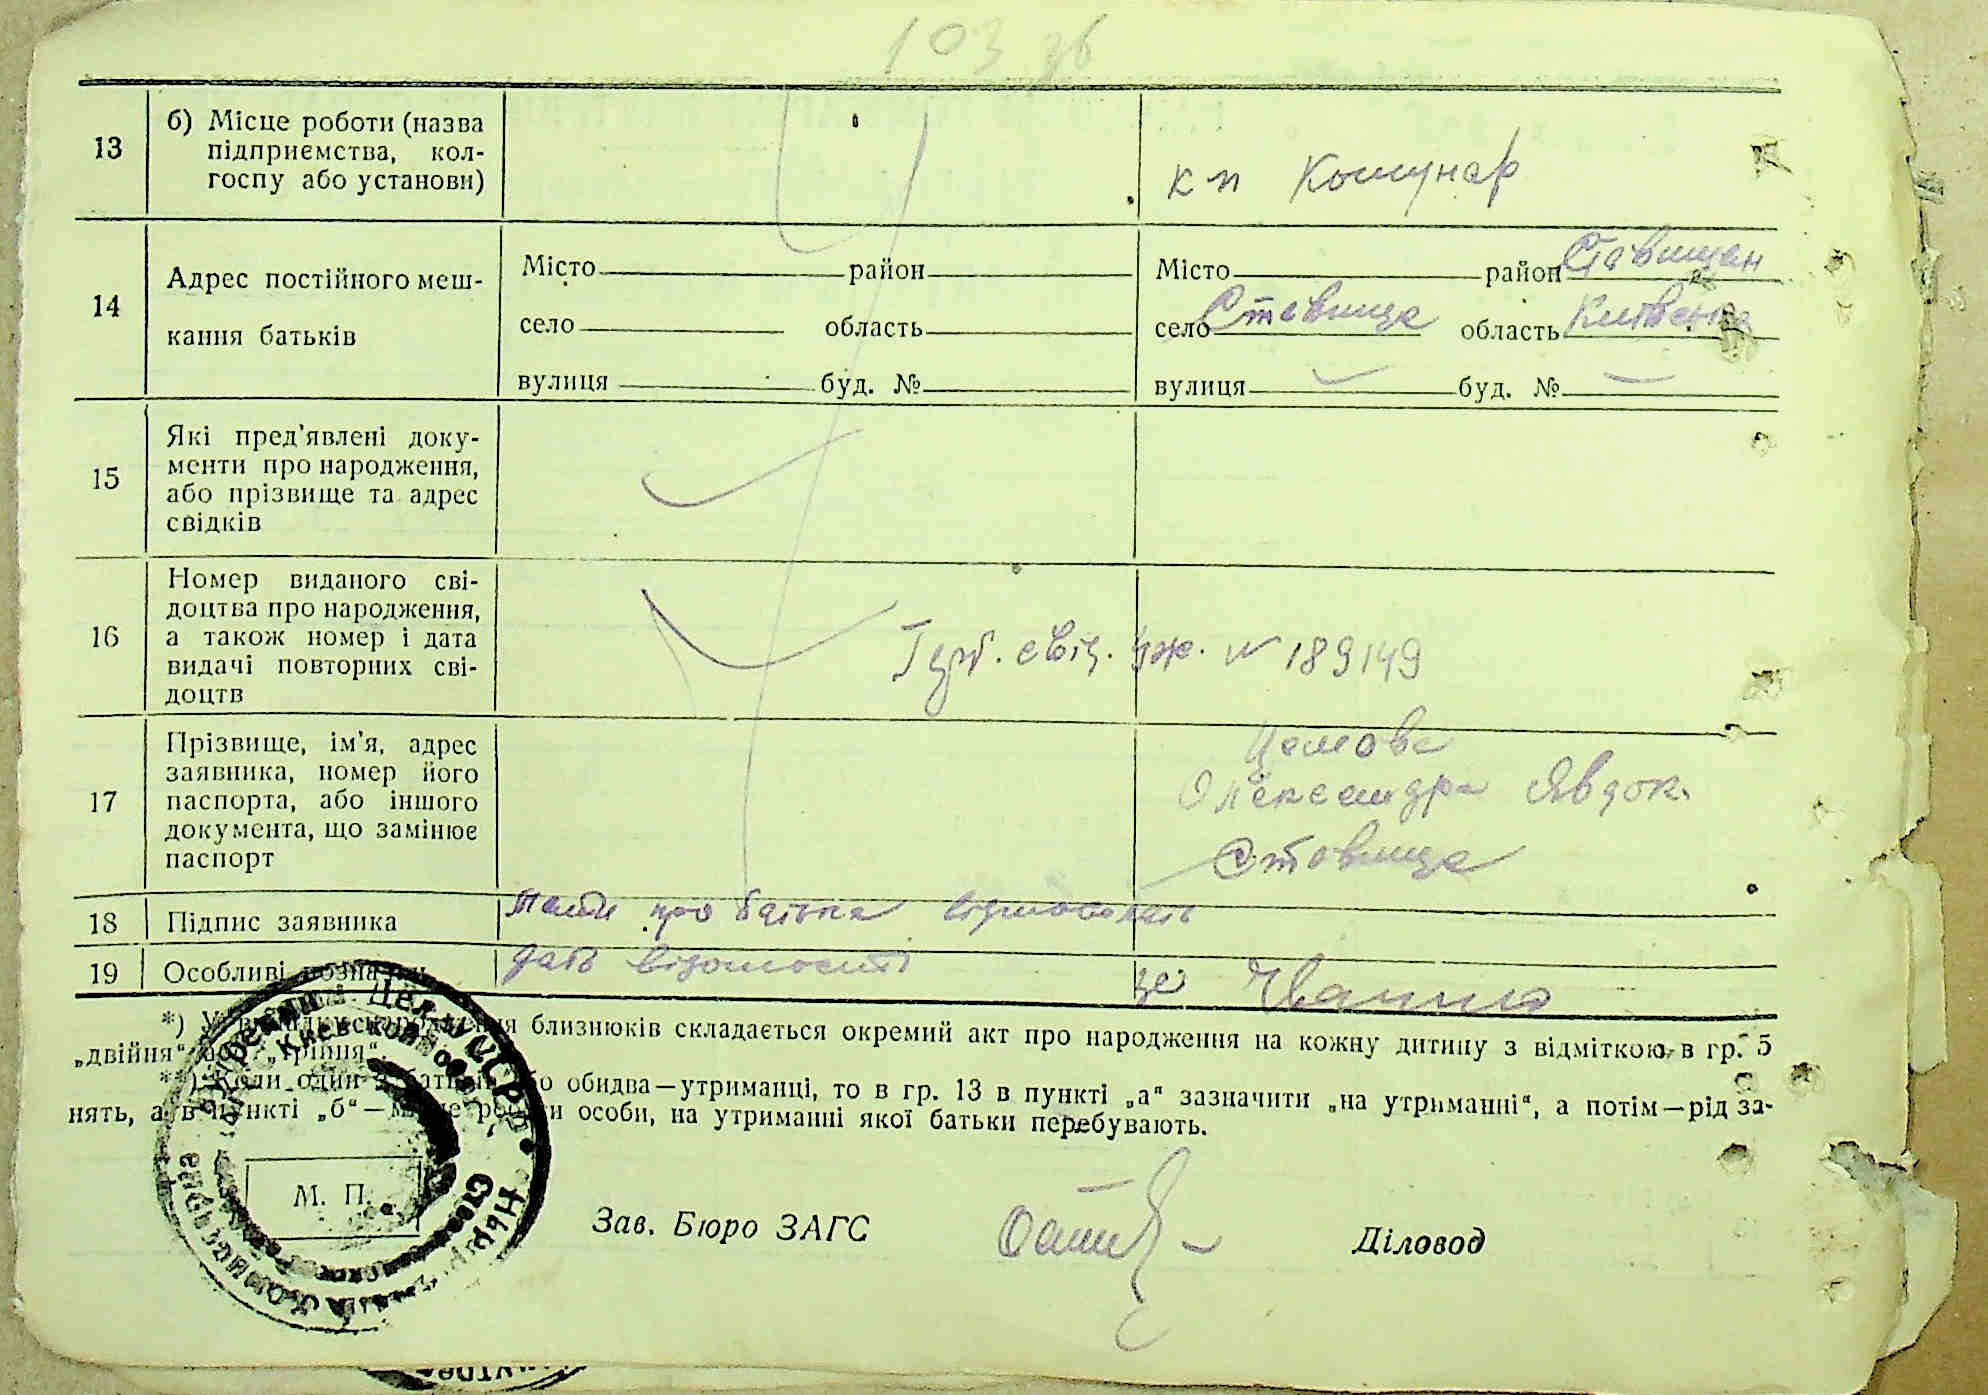 103 зв
13
б) Місце роботи (назва
підприємства, кол-
госпу або установи)
кп Комунар
14
Адрес постійного меш-
кання батьків
Місто район
село область
вулиця буд. №
Місто район Ставищан
село Ставище область Київська
вулиця буд. №
15
Які пред'явлені доку-
менти про народження,
або прізвище та адрес
свідків
16
Номер виданого сві-
доцтва про народження,
а також номер і дата
видачі повторних сві-
доцтв
свід. № 189149
17
Прізвище, ім'я, адрес
заявника, номер його
паспорта, або іншого
документа, що замінює
паспорт
Олександра Явдок.
Ставище
18
Підпис заявника
Мати про батька відмовилась
19
Особливі познаки
дать відомості
*) У випадку народження близнюків складається окремий акт про народження на кожну дитину з відміткою в гр. 5
„двійня“ або „трійня“.
**) Коли один з батьків або обидва—утриманці, то в гр. 13 в пункті „а“ зазначити „на утриманні“, а потім—рід за-
нять, а в пункті „б“—місце роботи особи, на утриманні якої батьки перебувають.
М. П.
Зав. Бюро ЗАГС
Діловод